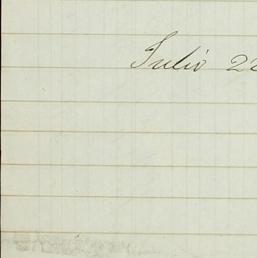 Julio 22